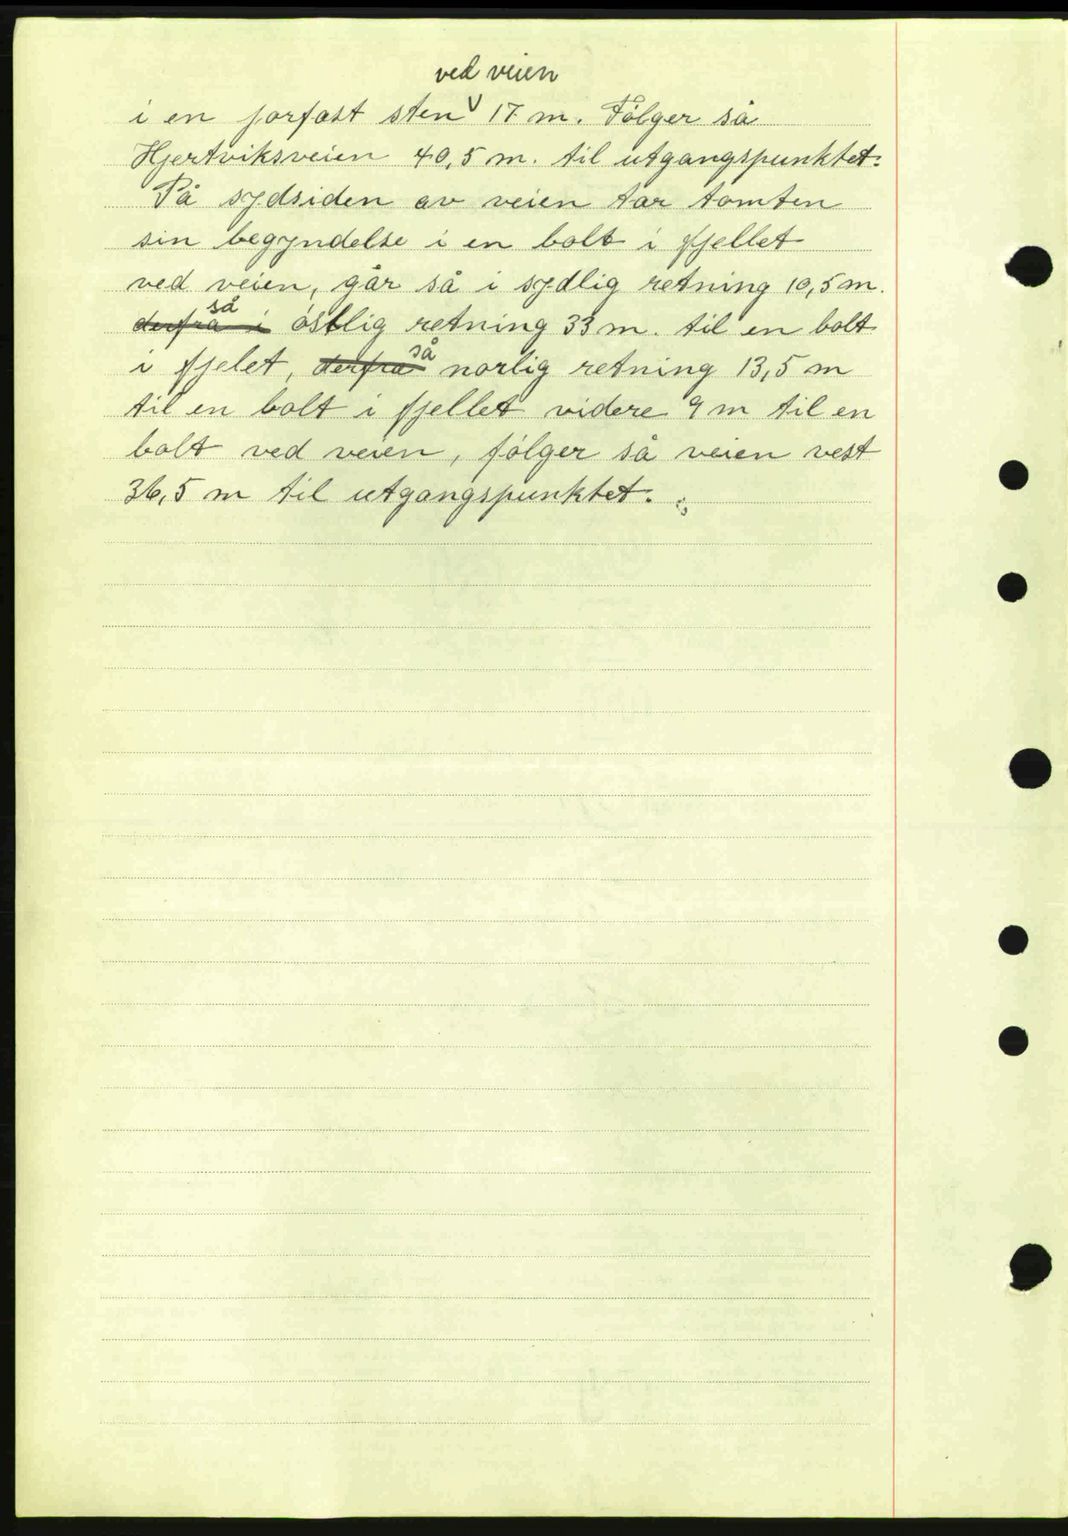 ved veien
i en jorfast sten ∨ 17 m. Følger så
Hjertviksveien 40,5 m. til utgangspunktet.
På sydsiden av veien tar tomten
sin begyndelse i en bolt i fjellet
ved veien, går så i sydlig retning 10,5 m.
så
derfra i østlig retning 33 m. til en bolt
så
i fjelet, derfra norlig retning 13,5 m
til en bolt i fjellet videre 9 m til en
bolt ved veien, følger så veien vest
36,5 m til utgangspunktet.